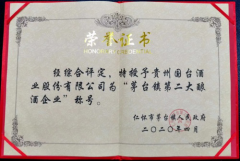 荣誉证书
经综合评定，特授予贵州国台酒
业股份有限公司为“茅台镇第二大酿
酒企业”称号。
仁怀市茅台镇人民政府
二〇二〇年四月